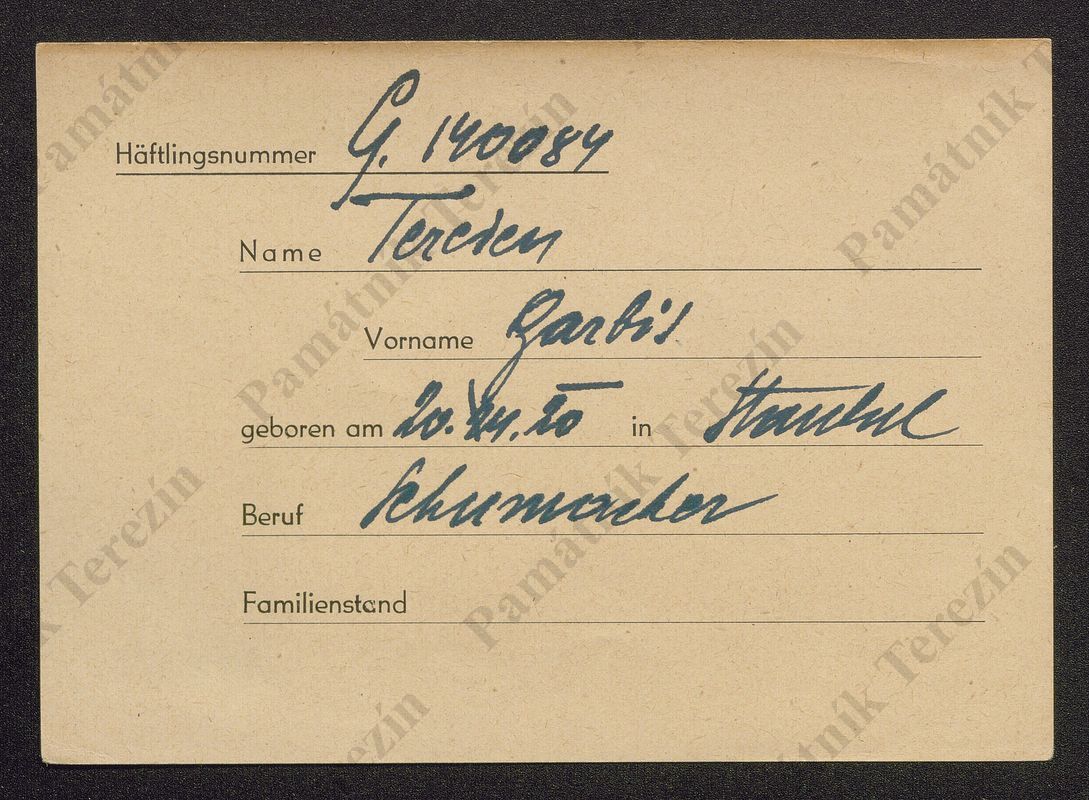 Häftlingsnummer G. 140084
Name Tereden
Vorname Garbis
geboren am 20. 20 in Stanbul
Beruf Schumacher
Familienstand
Památník Terezín